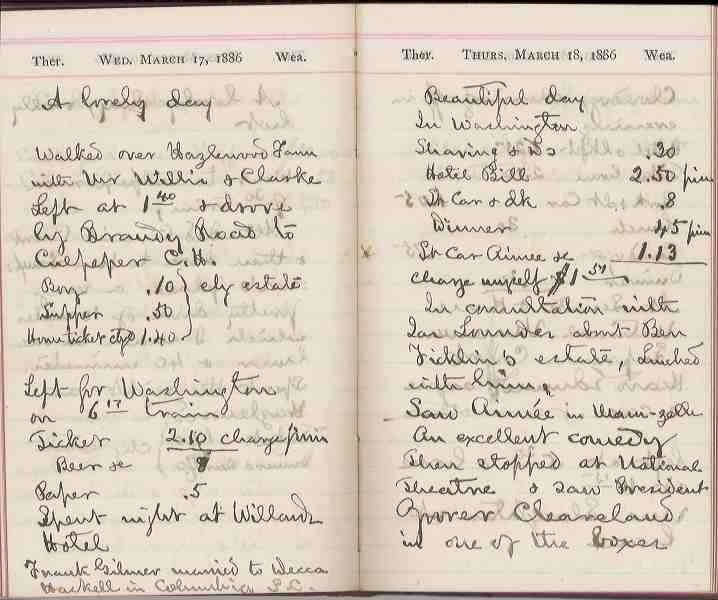 Ther. WED. MARCH 17, 1886 Wea.
A lovely day
Walked over Hazlewood Farm
with Mr Willis & Clarke
Left at 1 40 & drove
by Brandy Road to
Culpeper C.H.
Boy .10
Supper .50 chg estate
Home ticket chgd 1.40
Left for Washington
on 6 17 train
Ticket 2.10 charge firm
Beer &c 8
Paper .5
Spent night at Willards
Hotel
Frank Gilmer married to Decca
Haskell in Columbia S.C.
Ther. THURS. MARCH 18, 1886 Wea.
Beautiful day
In Washington
Shaving & .20
Hotel Bill 2.50 firm
St Car & dk .8
Dinner 45 firm
St Car Aimee &c 1.13
charge myself $1 54
In consultation with
Jas Lounder about Ben
Ficklin's estate, Lunched
with him.
Saw Aimée in Mam-zelle
An excellent comedy
Then stopped at National
Theatre & saw President
Grover Cleaveland
in one of the boxes